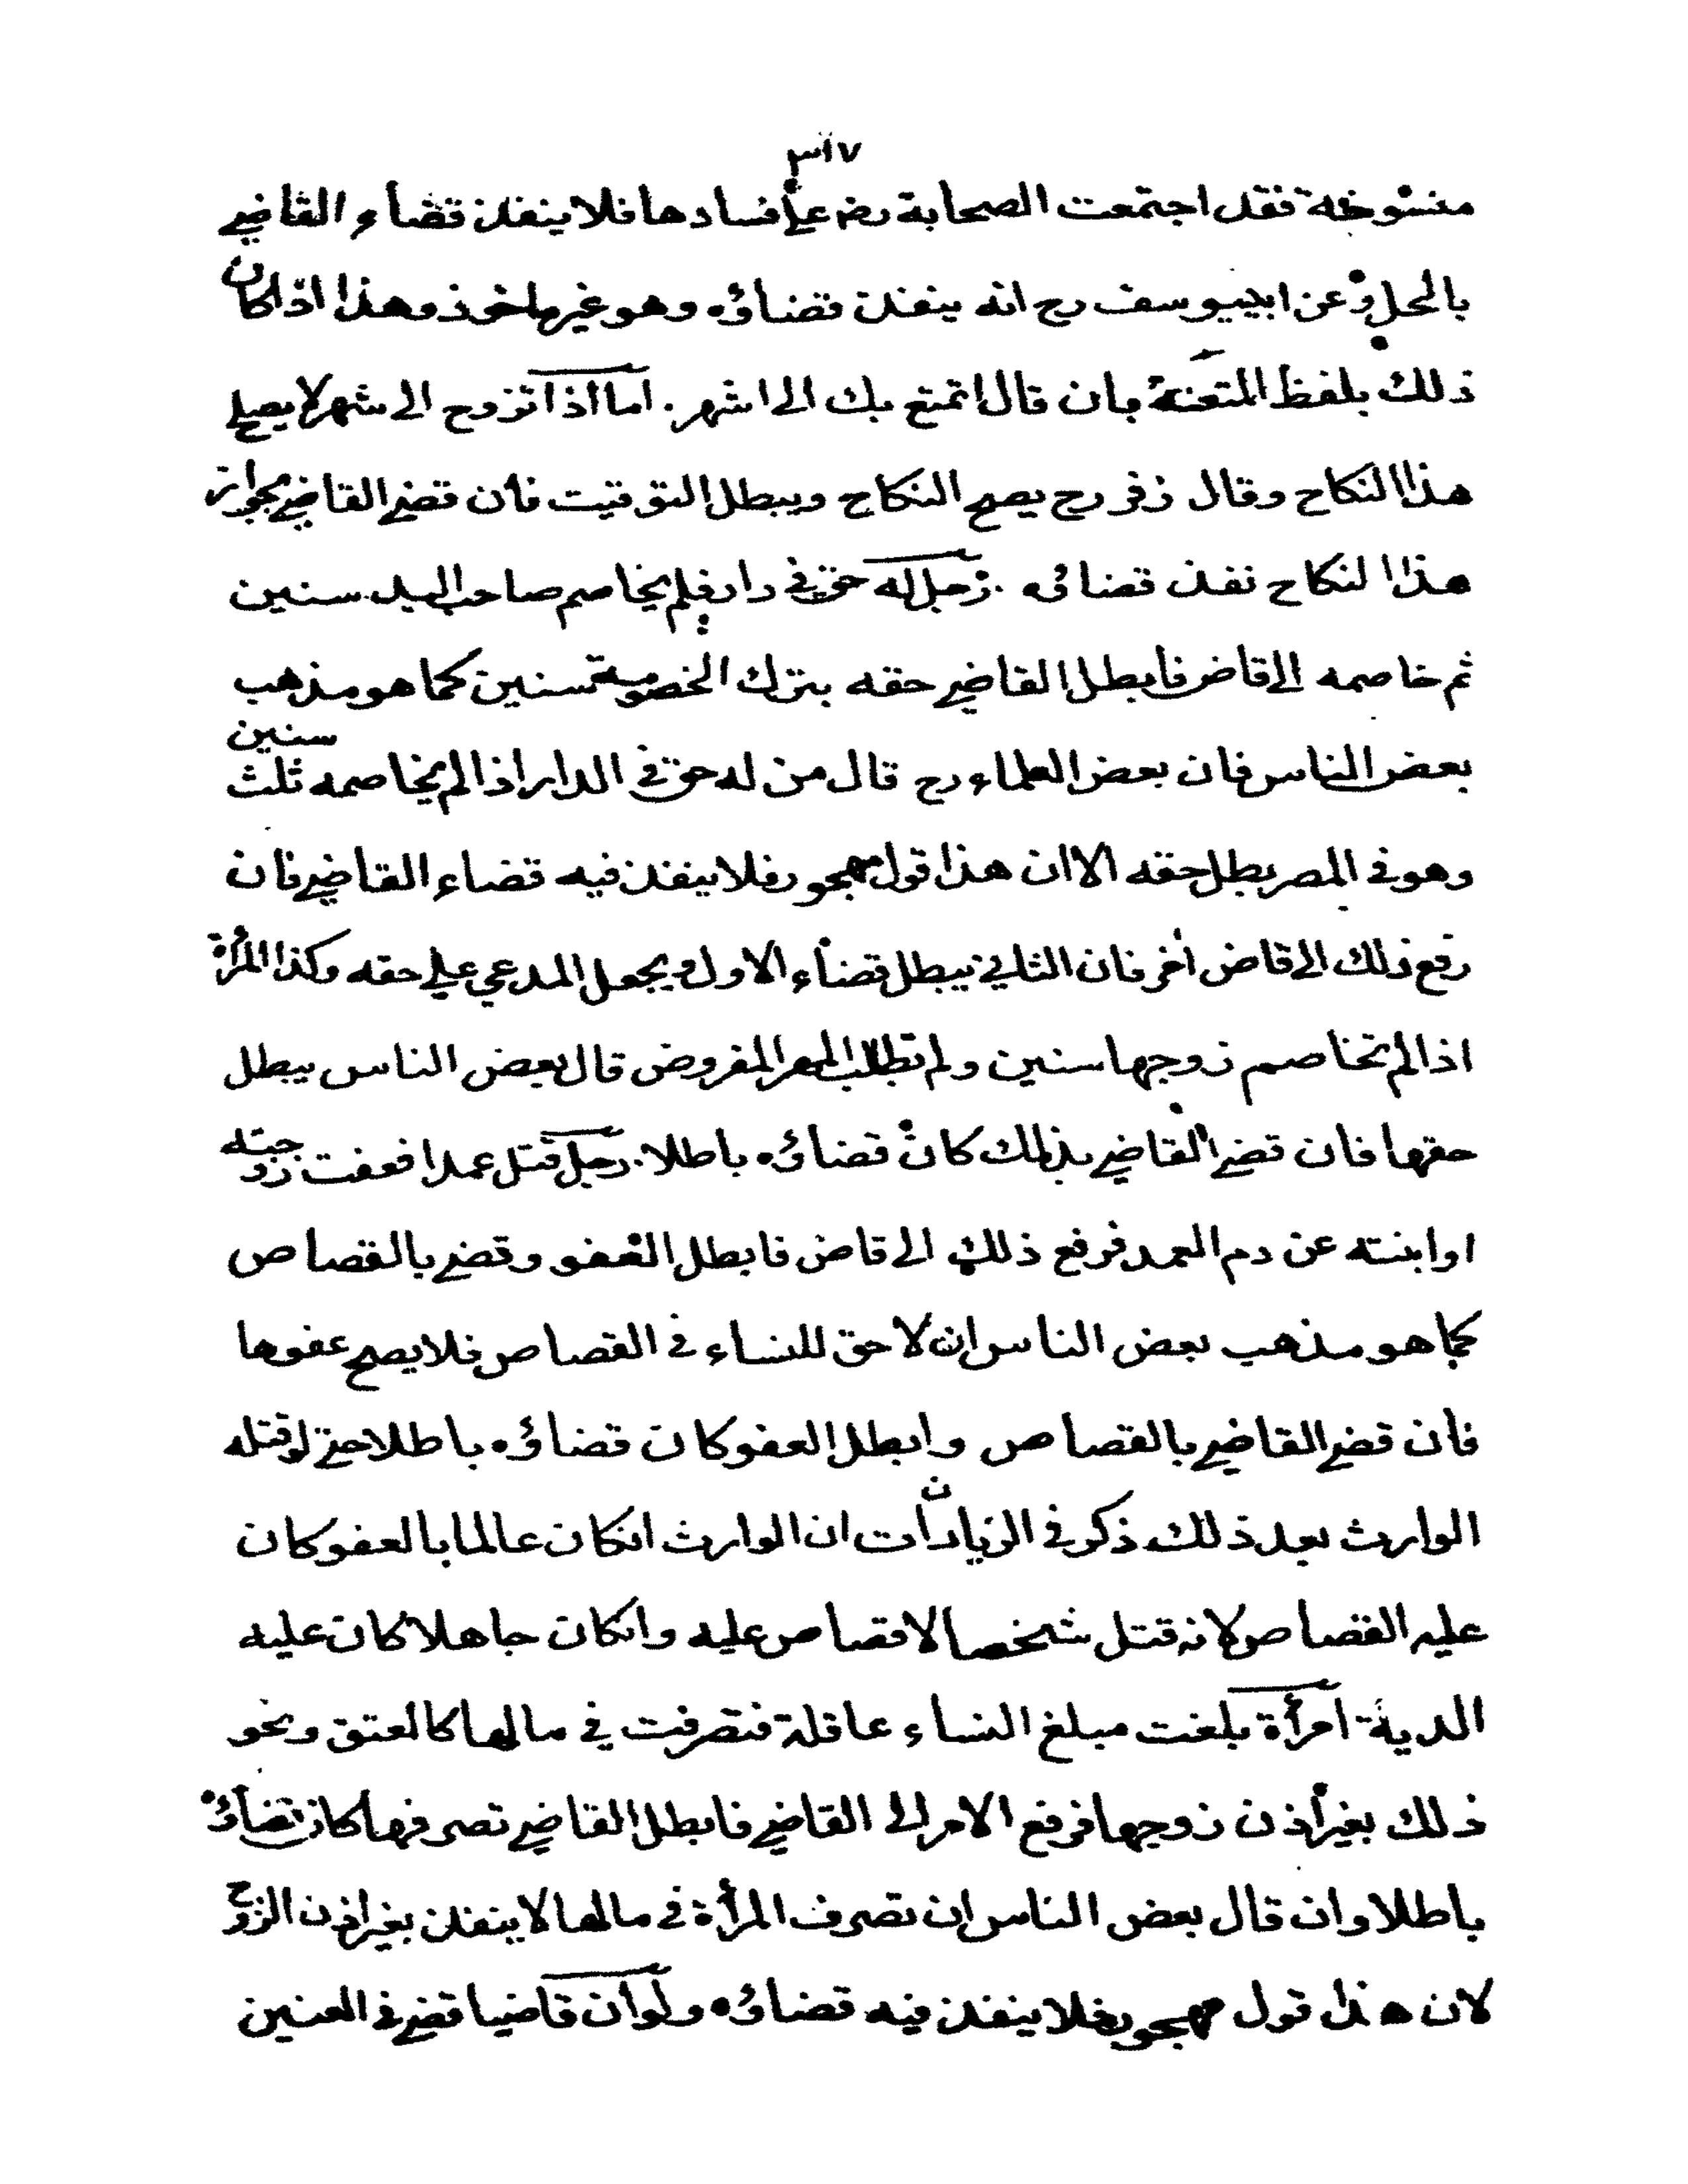 ٣١٧
منسوخة فقد اجتمعت الصحابة رض على فسادها فلا ينفذ قضاء القاضي
بالحل وعن ابي يوسف رح انه ينفذ قضاؤه وهو غير ماخوذ وهذا اذا كان
ذلك بلفظ المتعة بان قال اتمتع بك الى اشهر . اما اذا تزوج الى شهر لا يصح
هذا النكاح وقال زفر رح يصح النكاح ويبطل التوقيت فان قضى القاضي بجواز
هذا النكاح نفذ قضائه . رجل له حق في دار فلم يخاصم صاحب اليد سنين
ثم خاصمه الى قاض فابطل القاضي حقه بترك الخصومة سنين كما هو مذهب
بعض الناس فان بعض العلماء رح قال من له حق في الدار اذا لم يخاصمه ثلث سنين
وهو في المصر بطل حقه الا ان هذا قول مهجور فلا ينفذ فيه قضاء القاضي فان
رفع ذلك الى قاض اخر فان الثاني يبطل قضاء الاول ويجعل المدعي على حقه وكذا المرأة
اذا لم تخاصم زوجها سنين ولم تطلب المهر المفروض قال بعض الناس يبطل
حقها فان قضى القاضي بذلك كان قضاؤه باطلا . رجل قتل عمدا فعفت زوجته
او ابنته عن دم العمد فرفع ذلك الى قاض فابطل العفو وقضى بالقصاص
كما هو مذهب بعض الناس ان لا حق للنساء في القصاص فلا يصح عفوها
فان قضى القاضي بالقصاص وابطل العفو كان قضاؤه باطلا حتى لو قتله
الوارث بعد ذلك ذكر في الزيادات ان الوارث انكان عالما بالعفو كان
عليه القصاص لانه قتل شخصا لا قصاص عليه وانكان جاهلا كان عليه
الدية امرأة بلغت مبلغ النساء عاقلة فتصرفت في مالها كالعتق ونحو
ذلك بغير اذن زوجها فرفع الامر الى القاضي فابطل القاضي تصرفها كان قضاؤه
باطلا وان قال بعض الناس ان تصرف المرأة في مالها لا ينفذ بغير اذن الزوج
لان هذا قول مهجور فلا ينفذ فيه قضاؤه ولو ان قاضيا قضى في العنين